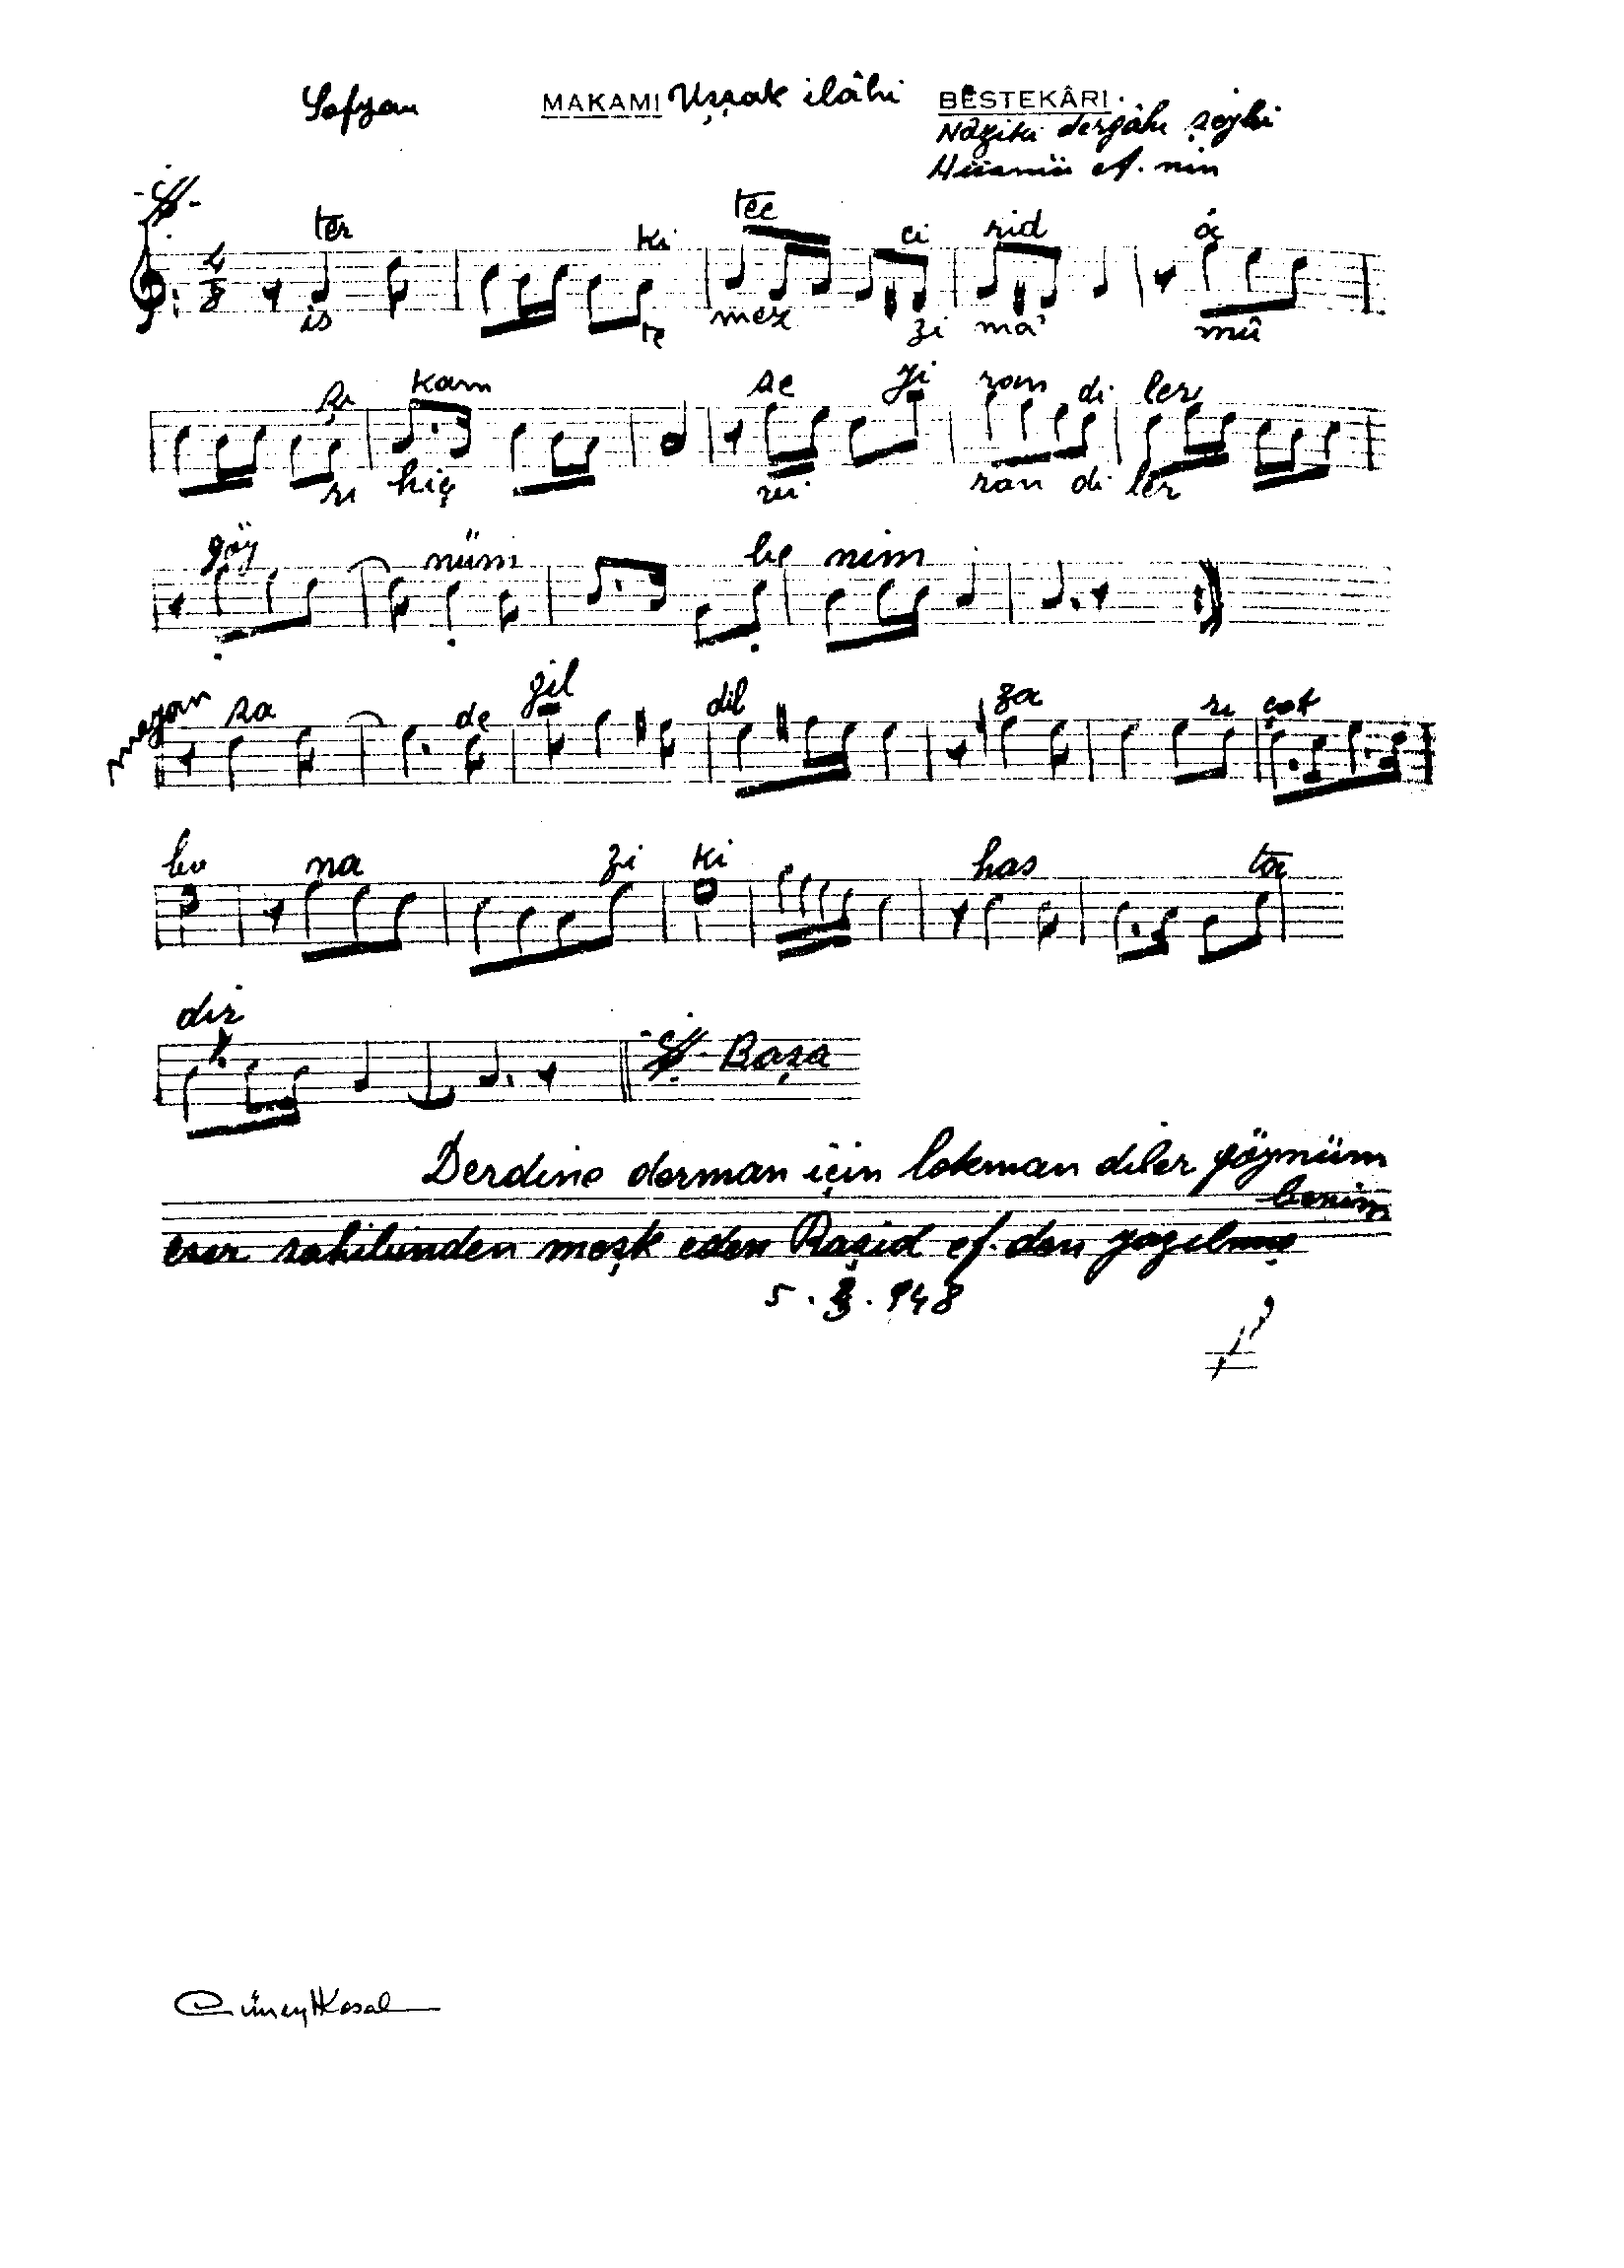 Sofyan MAKAMI Uşşak ilâhi BESTEKÂRI
Nâziki dergâhı şeyhi
Hüsnü ef. nin
4/8
ter ki tec ci rid â
is te mez zi ma' mû
şi kam se yi ran di ler
ri hiç ran di ler
göy nüm be nim
meyan sa de gil dil za rı çok
bu na zi ki has ta
dır
Başa
Derdine derman için lokman diler göynüm
benim
eser sahibinden meşk eden Raşid ef. den yazılmış
5. 3. 948
Cüneyt Kosal